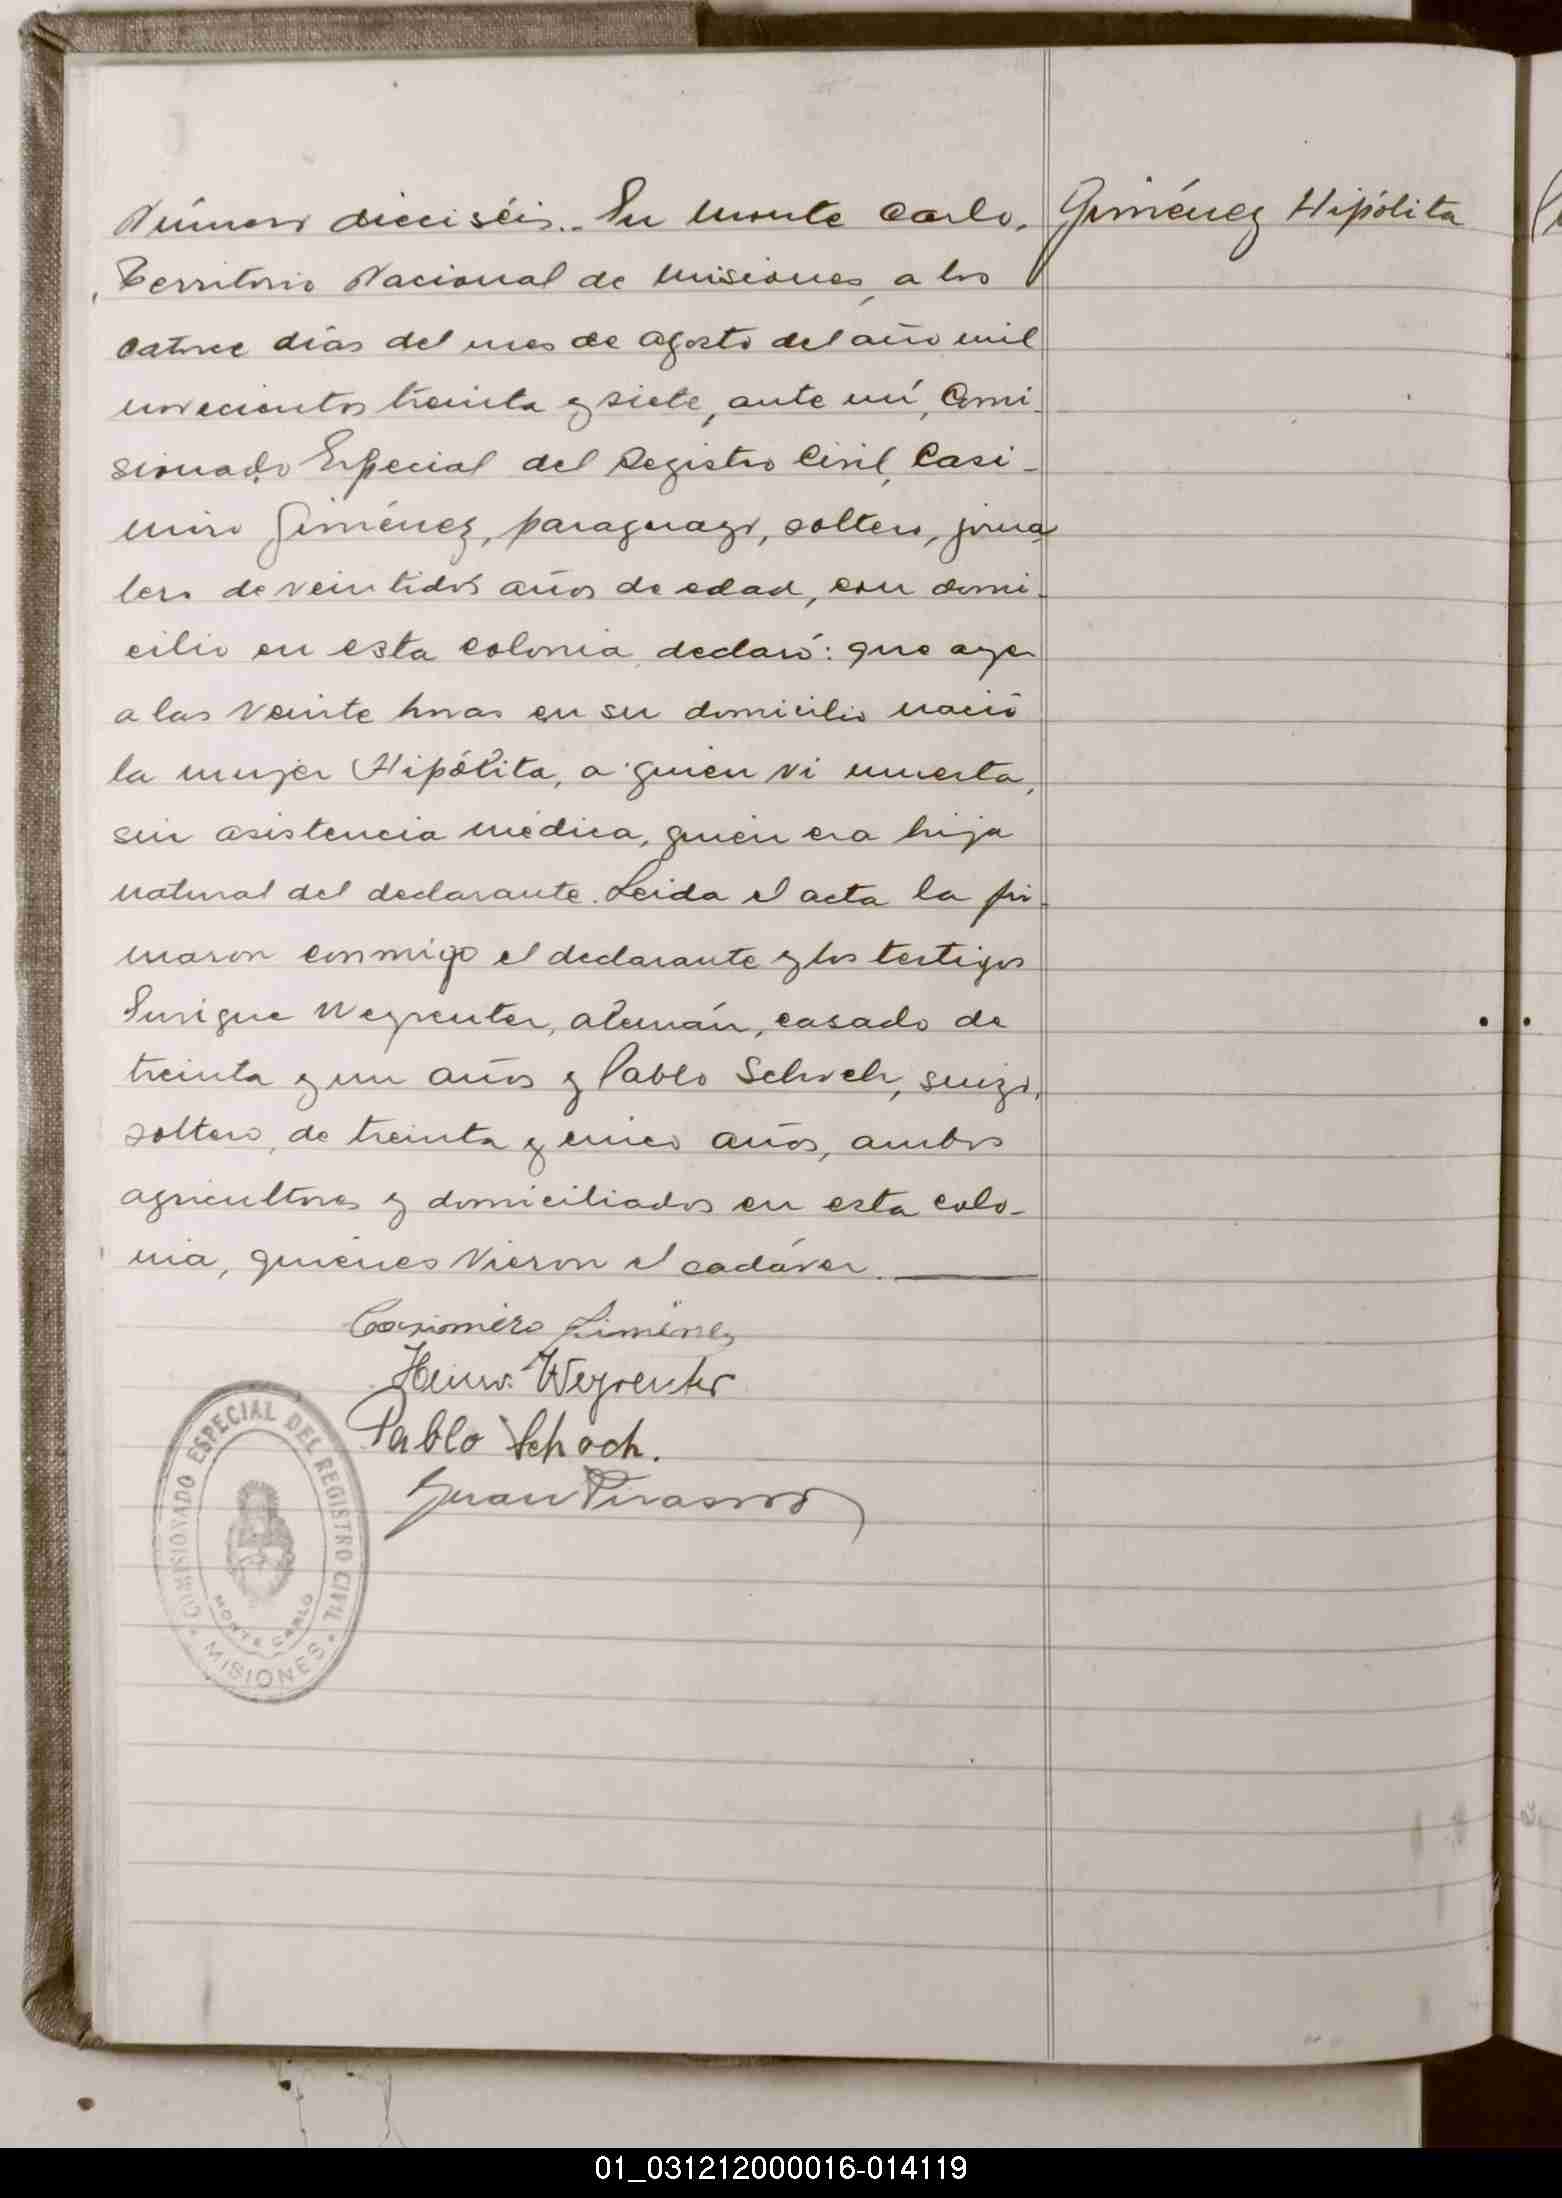 Número dieciséis.- En Monte Carlo,
Giménez Hipólita
Territorio Nacional de Misiones, a los
catorce días del mes de agosto del año mil
novecientos treinta y siete, ante mí, Comi-
sionado Especial del Registro Civil, Casi-
miro Giménez, paraguayo, soltero, jorna-
lero de veintidos años de edad, con domi-
cilio en esta colonia declaró: que ayer
a las veinte horas en su domicilio nació
la mujer Hipólita, a quien vi muerta,
sin asistencia médica, quien era hija
natural del declarante. Leida el acta la fir-
maron conmigo el declarante y los testigos
Enrique Weyreuter, alemán, casado de
treinta y un años y Pablo Schoch, suizo,
soltero, de treinta y cinco años, ambos
agricultores y domiciliados en esta colo-
nia, quienes vieron el cadáver.
Casimiro Jiménez
Heinr. Weyreuter
Pablo Schoch.
Juan
COMISIONADO ESPECIAL DEL REGISTRO CIVIL
MONTE CARLO
MISIONES
01_031212000016-014119